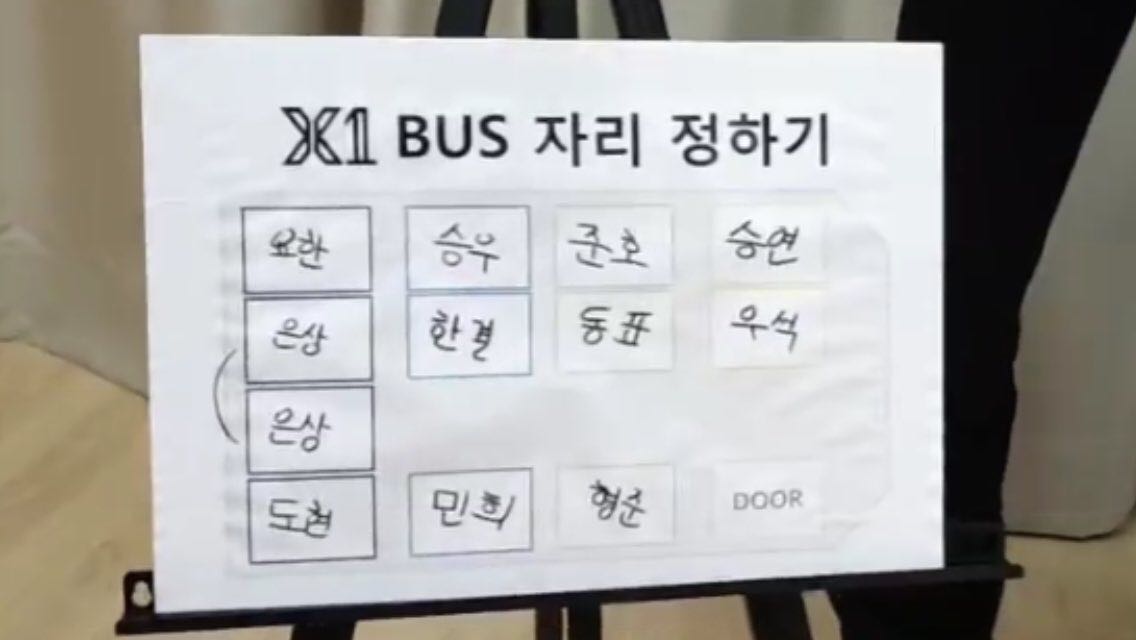 X1 BUS 자리 정하기
요한 승우 준호 승연
은상 한결 동표 우석
은상
도현 민희 형준 DOOR